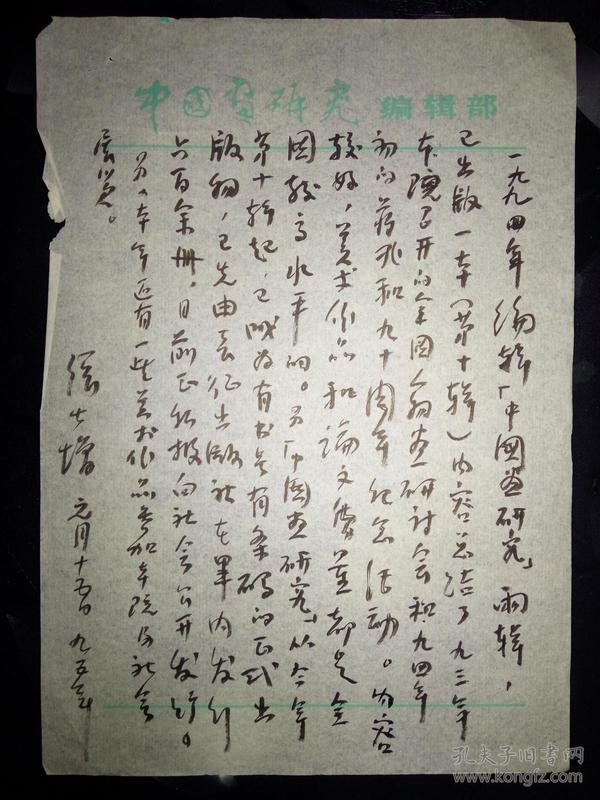 中国画研究 编辑部
一九九四年编辑「中国画研究」两辑，
已出版一本（第十辑）内容总结了九三年
本院召开的全国人物画研讨会和九四年
初的蒋兆和九十周年纪念活动。内容
较好，美术作品和论文质量都是全
国较高水平的。另「中国画研究」从今年
第十辑起，已成为有书号有条码的正式出
版物，已先由长征出版社在军内发行
六百余册，目前正积极向社会公开发行。
另，本年还有一些美术作品参加本院及社会
展览。
张士增 元月十五日 九五年
孔夫子旧书网
www.kongfz.com